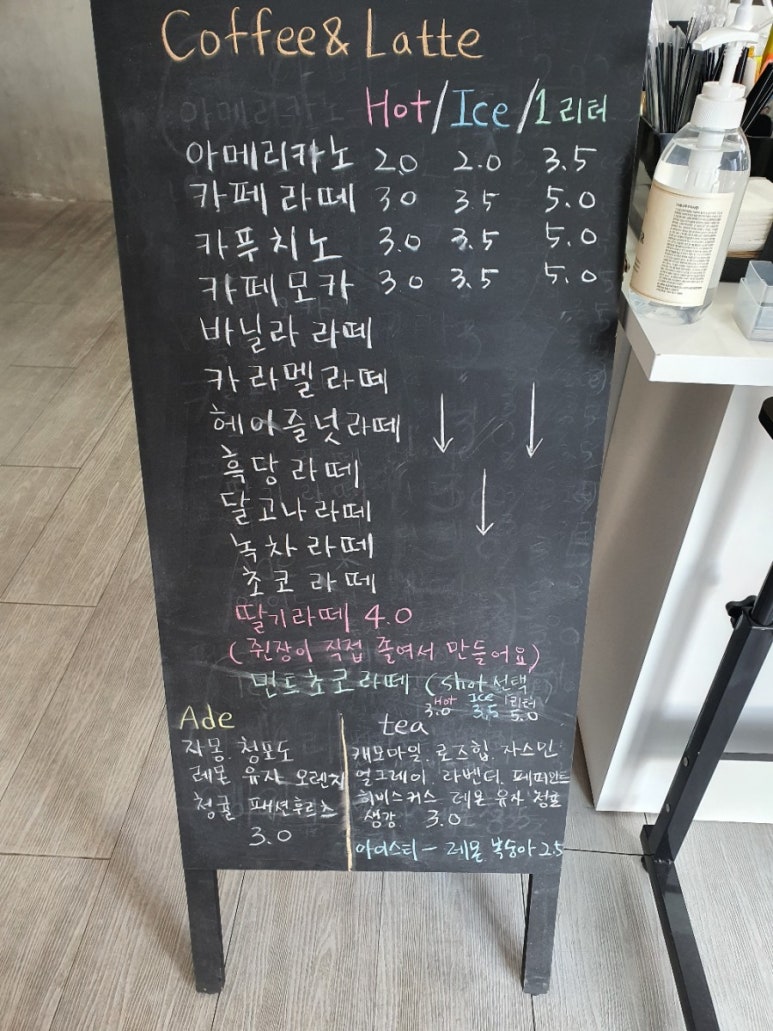 Coffee & Latte
Hot / Ice / 1리터
아메리카노 2.0 2.0 3.5
카페라떼 3.0 3.5 5.0
카푸치노 3.0 3.5 5.0
카페모카 3.0 3.5 5.0
바닐라 라떼
카라멜라떼
헤이즐넛라떼
흑당라떼
달고나라떼
녹차라떼
초코 라떼
딸기라떼 4.0
(쥔장이 직접 졸여서 만들어요)
민트초코라떼 (shot 선택
Hot Ice 1리터
3.0 3.5 5.0
Ade
자몽. 청포도
레몬 유자 오렌지
청귤 패션후르츠
3.0
tea
캐모마일. 로즈힙. 자스민
얼그레이. 라벤더. 페퍼민트
히비스커스 레몬 유자 청귤
생강 3.0
아이스티 - 레몬 복숭아 2.5